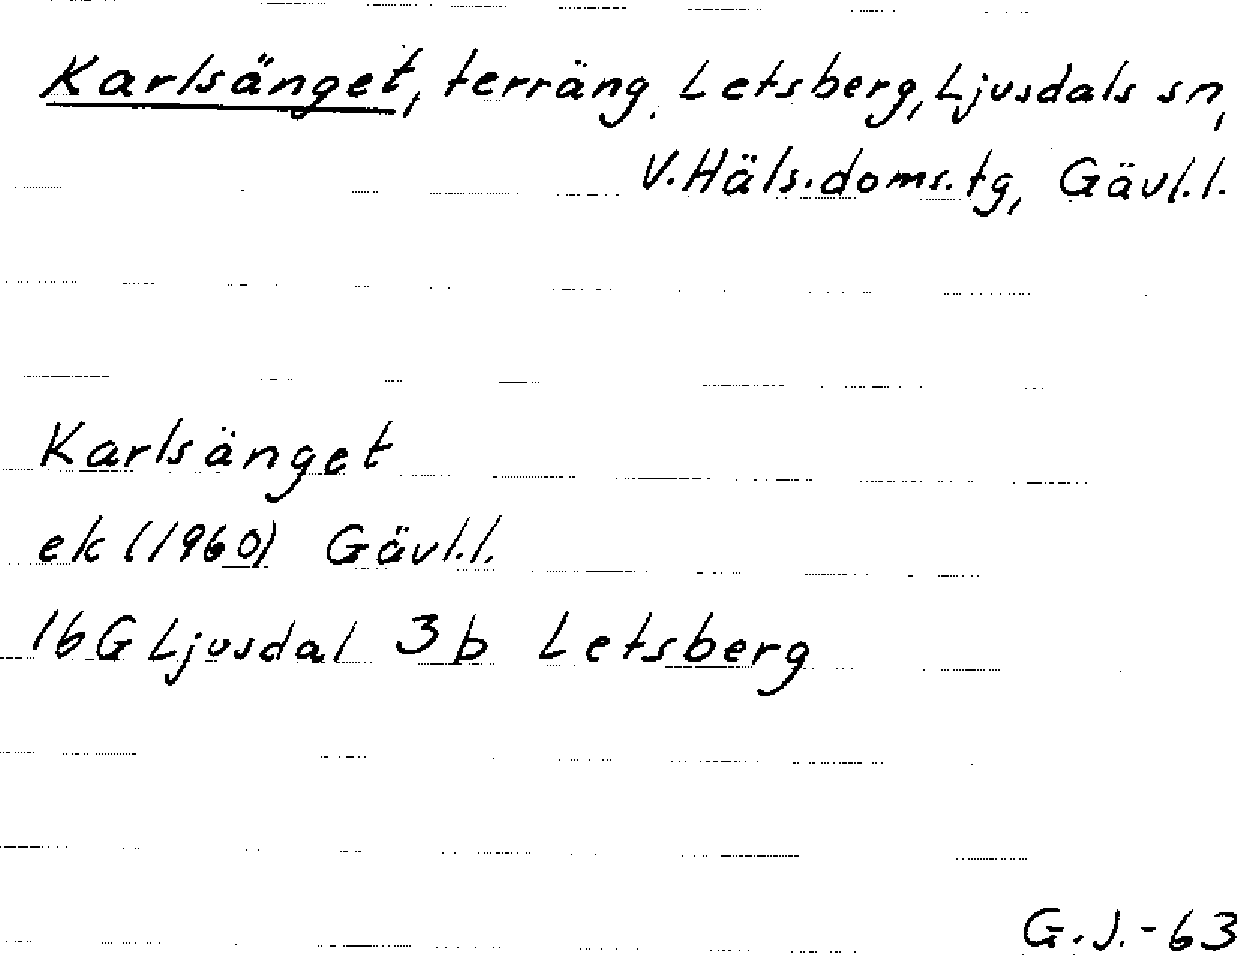 Karlsänget, terräng, Letsberg, Ljusdals sn,
V. Häls. doms. tg, Gävl. l.
Karlsänget
ek (1960) Gävl. l.
16 G Ljusdal 3 b Letsberg
G. J. - 63